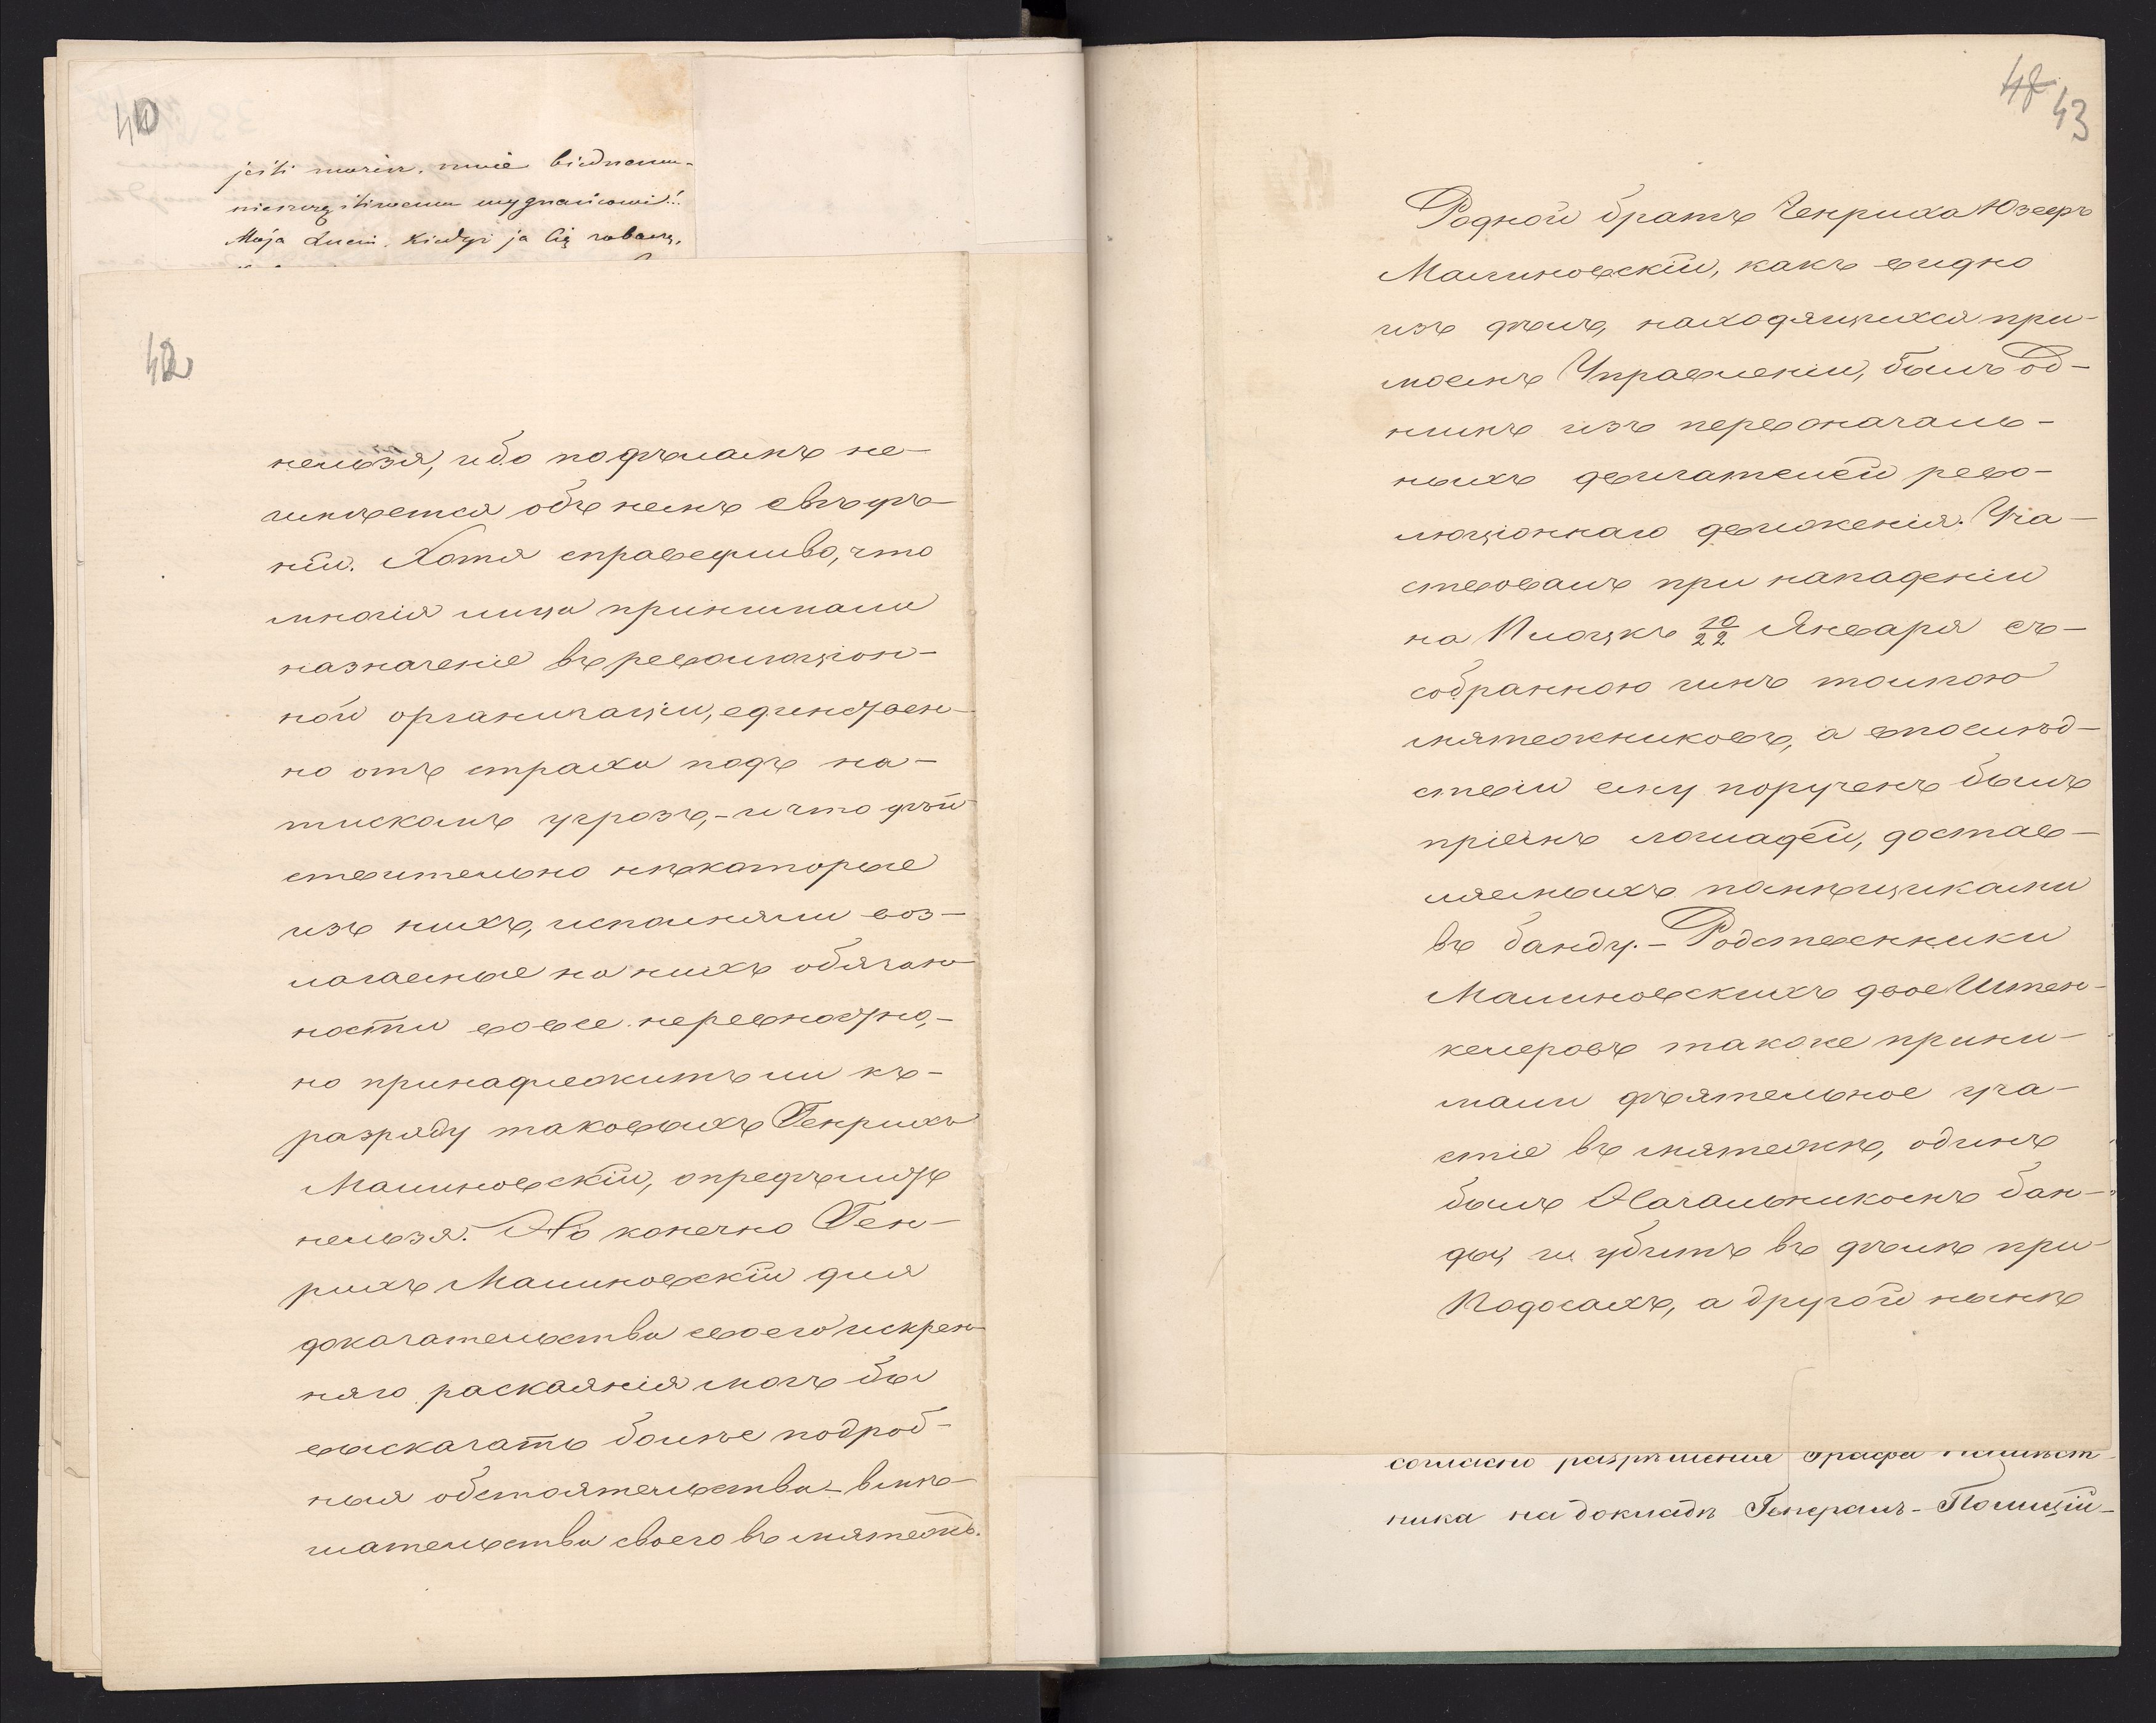 40
jeśli można, mnie biednemu
nieszczęśliwemu wygnańcowi!..
Moja Lucin. Kiedyż ja Cię zobaczę,
42
нельзя, ибо по дѣламъ не-
имѣется объ немъ свѣдѣ-
нiй. Хотя справедливо, что
многiя лица принимали
назначенiе въ революцiон-
ной организацiи, единствен-
но отъ страха подъ на-
тискомъ угрозъ,- и что дѣй
ствительно нѣкоторые
изъ нихъ, исполняли воз-
лагаемые на нихъ обязан-
ности вовсе неревностно,-
но принадлежитъ ли къ-
разряду таковыхъ Генрихъ
Малиновскiй, опредѣлить
нельзя. Но конечно Ген-
рихъ Малиновскiй для
доказательства своего искрен-
няго раскаянiя могъ бы
высказать болѣе подроб-
ныя обстоятельства вмѣ-
шательства своего въ мятежъ.
43
Родной братъ Генриха Юзефъ
Малиновскiй, какъ видно
изъ дѣлъ, находящихся при-
моемъ Управленiи, былъ од-
нимъ изъ первоначаль-
ныхъ двигателей рево-
люцiоннаго движенiя. Уча-
ствовалъ при нападенiи
на Плоцкъ 10/22 Января съ-
собранною имъ толпою
мятежниковъ, а впослѣд-
ствiи ему порученъ былъ
прiемъ лошадей, достав-
ляемыхъ помѣщиками
въ банду.- Родственники
Малиновскихъ двое Штен-
келеровъ также прини-
мали дѣятельное уча-
стiе въ мятежѣ, одинъ
былъ Начальникомъ бан-
ды, и убитъ въ дѣлѣ при-
Подосахъ, а другой нынѣ
согласно разрѣшенiя Графа Намѣст-
ника на докладѣ Генералъ-Полицiй-